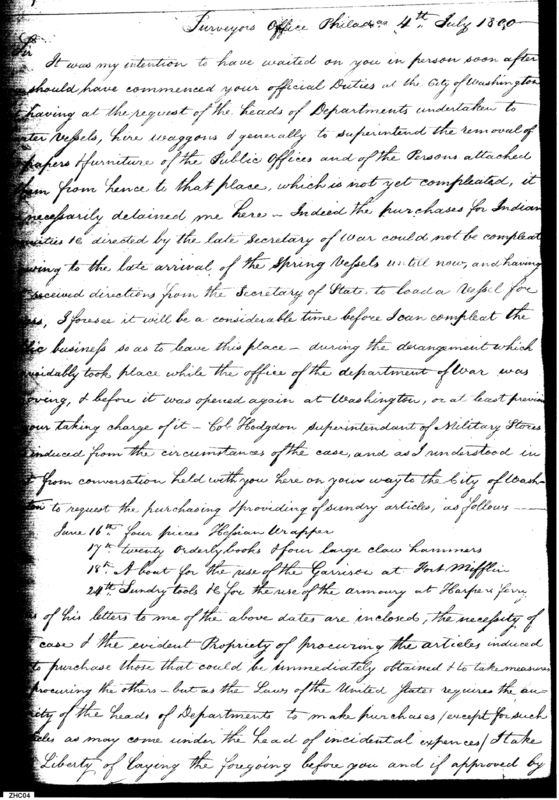 Surveyors Office Philada 4th July 1800
Sir
It was my intention to have waited on you in person soon after
should have commenced your official Duties at the City of Washington
having at the request of the heads of Departments undertaken to
ter Vessels, hire waggons & generally to superintend the removal of
papers & furniture of the Public Offices and of the Persons attached
em from hence to that place, which is not yet compleated, it
necessarily detained me here – Indeed the purchases for Indian
uities &c directed by the late Secretary of War could not be compleat
wing to the late arrival of the Spring Vessels untill now, and having
received directions from the Secretary of State to load a Vessel for
rs, I foresee it will be a considerable time before I can compleat the
lic business so as to leave this place – during the derangement which
voidably took place while the office of the department of War was
oving, & before it was opened again at Washington, or at least previou
your taking charge of it – Col. Hodgdon superintendant of Military Stores
induced from the circumstances of the case, and as I understood in
& from conversation held with you here on your way to the City of Wash-
ton to request the purchasing & providing of sundry articles, as follows –
June 16th four pieces Hessian Wrapper
17th twenty Orderly books & four large claw hammers
18th A boat for the use of the Garrison at Fort Mifflin
24th Sundry tools &c for the use of the armoury at Harpers ferry
s of his letters to me of the above dates are inclosed, the necessity of
case & the evident Propriety of procuring the articles induced
to purchase those that could be immediately obtained & to take measures
procuring the others – but as the Laws of the United States requires the au-
rity of the heads of Departments to make purchases (except for such
cles as may come under the head of incidental expences) I take
Liberty of laying the foregoing before you and if approved by
ZHC04